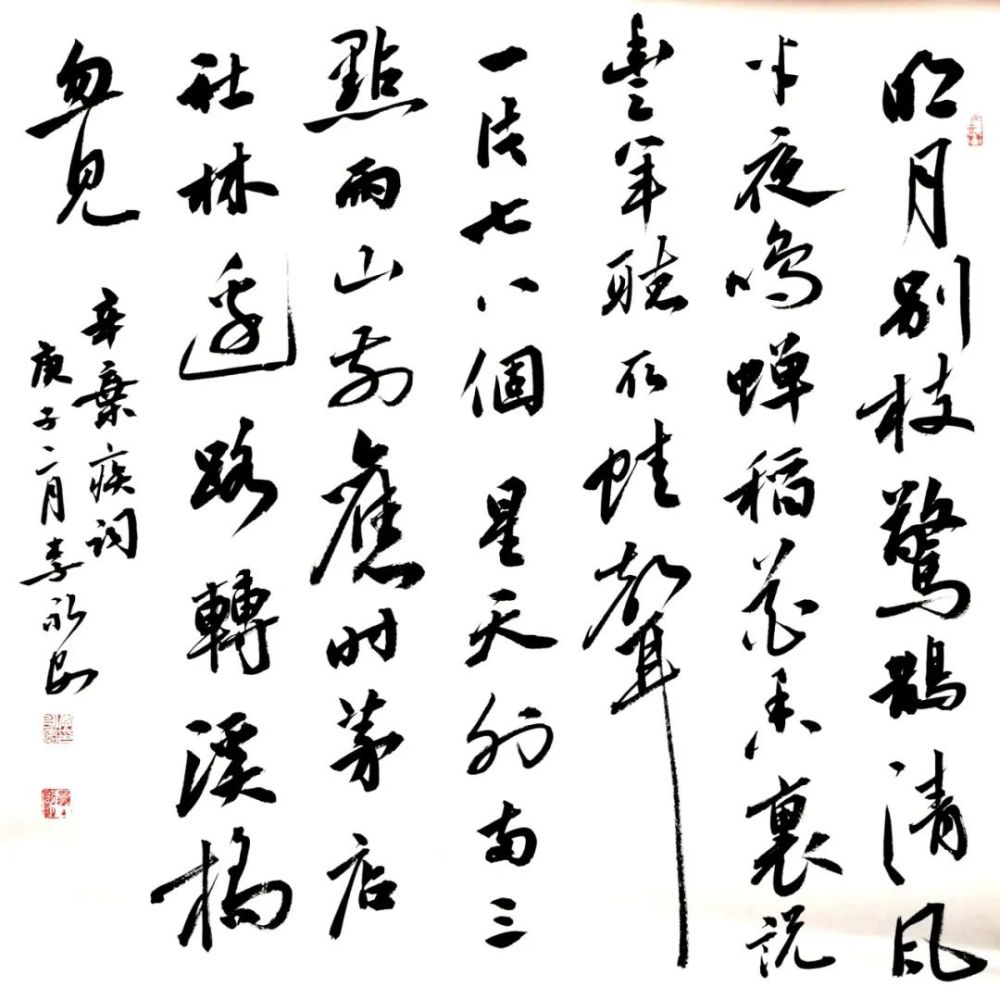 明月別枝驚鵲清風
半夜鳴蟬稻花香裏説
豐年聽取蛙聲
一片七八個星天外兩三
點雨山前舊时茅店
社林邊路轉溪橋
忽見
辛棄疾詞
庚子二月李永